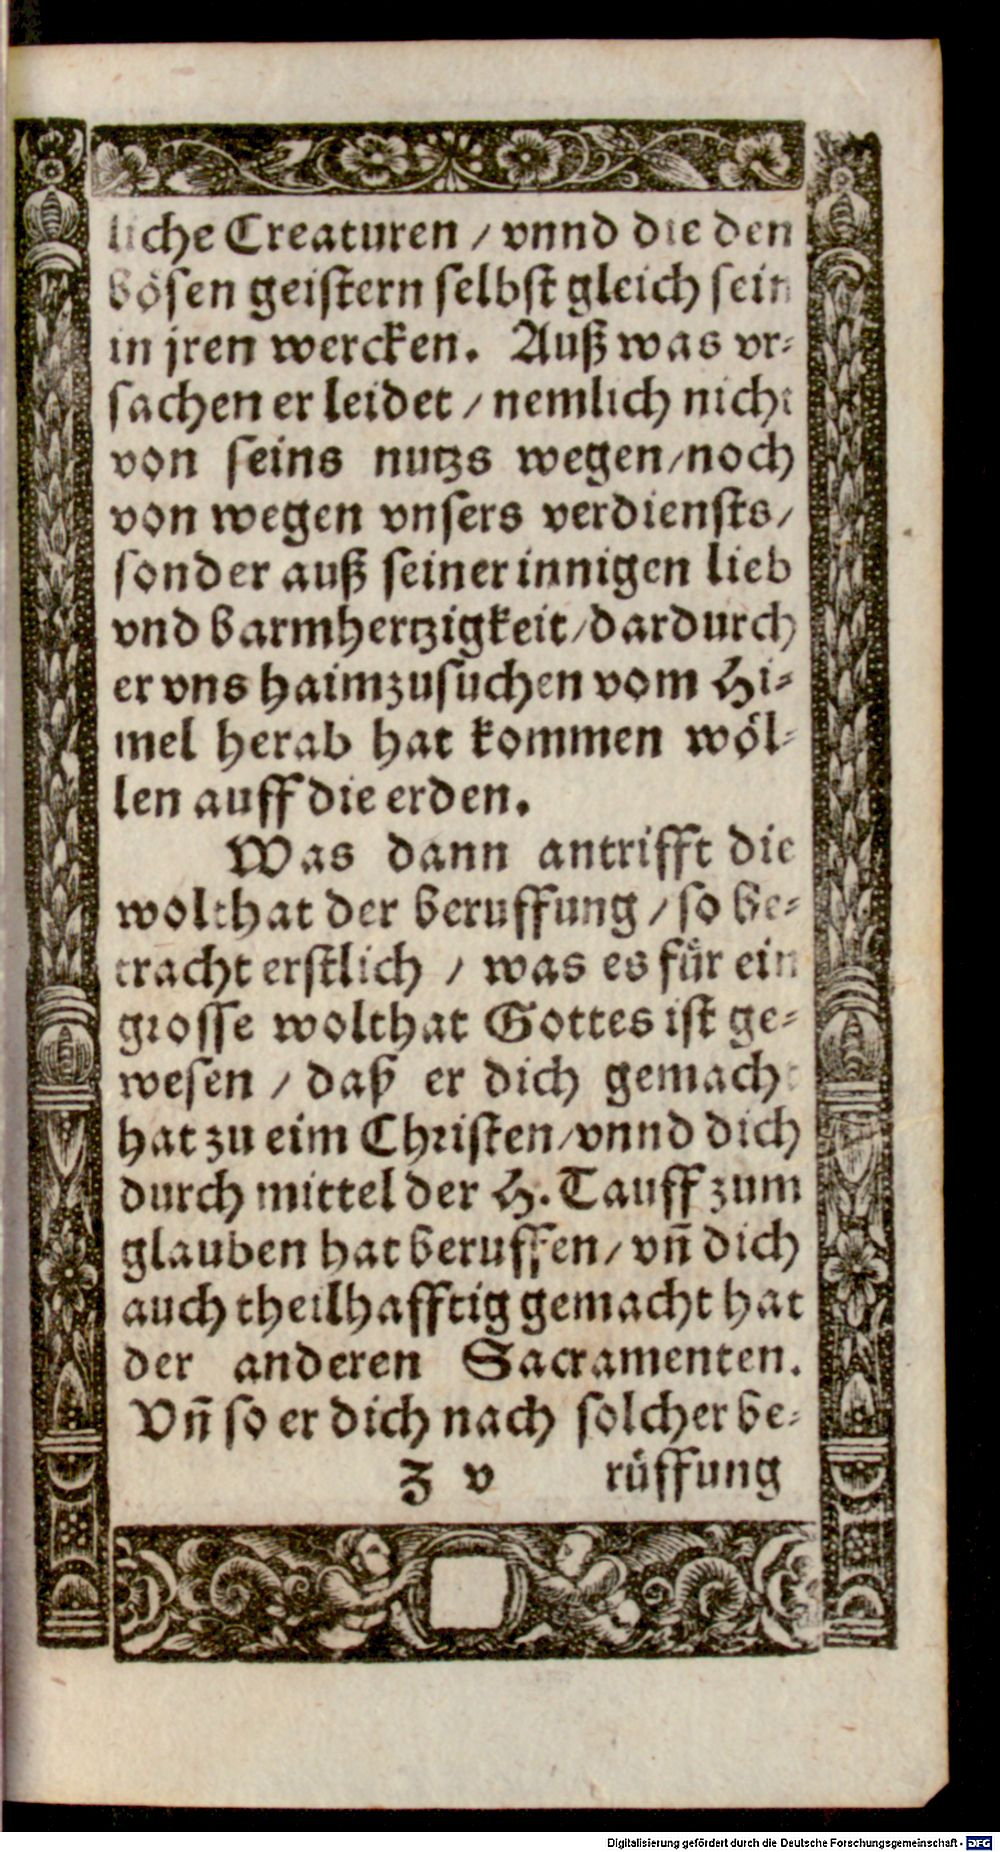 liche Creaturen / vnnd die den
bösen geistern selbst gleich sein
in jren wercken. Auß was vr-
sachen er leidet / nemlich nicht
von seins nutzs wegen / noch
von wegen vnsers verdiensts /
sonder auß seiner innigen lieb
vnd barmhertzigkeit / dardurch
er vns haimzusuchen vom Hi-
mel herab hat kommen wöl-
len auff die erden.
Was dann antrifft die
wolthat der beruffung / so be-
tracht erstlich / was es für ein
grosse wolthat Gottes ist ge-
wesen / daß er dich gemacht
hat zu eim Christen / vnnd dich
durch mittel der H. Tauff zum
glauben hat beruffen / vñ dich
auch theilhafftig gemacht hat
der anderen Sacramenten.
Vñ so er dich nach solcher be-
Z v rüffung
Digitalisierung gefördert durch die Deutsche Forschungsgemeinschaft - DFG